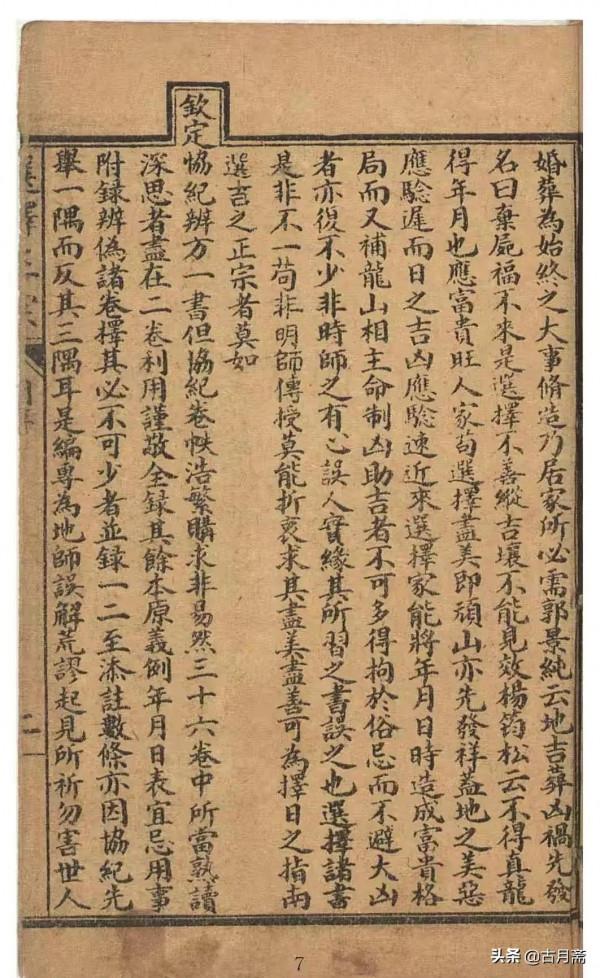 婚葬為始終之大事脩造乃居家所必需郭景純云地吉葬凶禍先發
名曰棄屍福不來是選擇不善縱吉壤不能見效楊筠松云不得真龍
得年月也應富貴旺人家苟選擇盡美即頑山亦先發祥蓋地之美惡
應驗遲而日之吉凶應驗速近來選擇家能將年月日時造成富貴格
局而又補龍山相主命制凶助吉者不可多得拘於俗忌而不避大凶
者亦復不少非時師之有心誤人實緣其所習之書誤之也選擇諸書
是非不一苟非明師傳授莫能折衷求其盡美盡善可為擇日之指南
選吉之正宗者莫如
欽定協紀辨方一書但協紀卷帙浩繁購求非易然三十六卷中所當熟讀
深思者盡在二卷利用謹敬全錄其餘本原義例年月日表宜忌用事
附錄辨偽諸卷擇其必不可少者並錄一二至添註數條亦因協紀先
舉一隅而反其三隅耳是編專為地師誤解荒謬起見所祈勿害世人
選擇正宗
二
7
头条 @古月斋